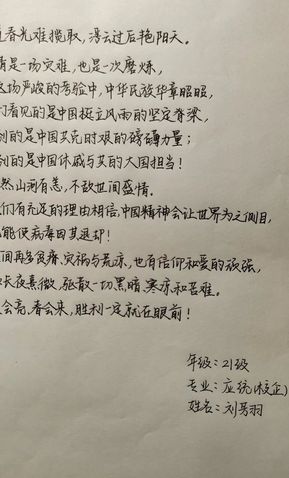 春光难揽取,浮云过后艳阳天。
情是一场灾难,也是一次磨炼,
这场严峻的考验中,中华民族华章昭昭,
们看见的是中国挺立风雨的坚定脊梁,
到的是中国共克时艰的磅礴力量;
到的是中国休戚与共的大国担当!
然山河有恙,不敌世间盛情。
我们有充足的理由相信,中国精神会让世界为之侧目,
能使病毒因其退却!
间再多贪瘠,灾祸与荒凉,也有信仰和爱的顽强,
长夜熹微,驱散一切黑暗、寒凉和苦难。
会亮,春会来,胜利一定就在眼前!
年级:21级
专业:应统(校企)
姓名:刘芳羽